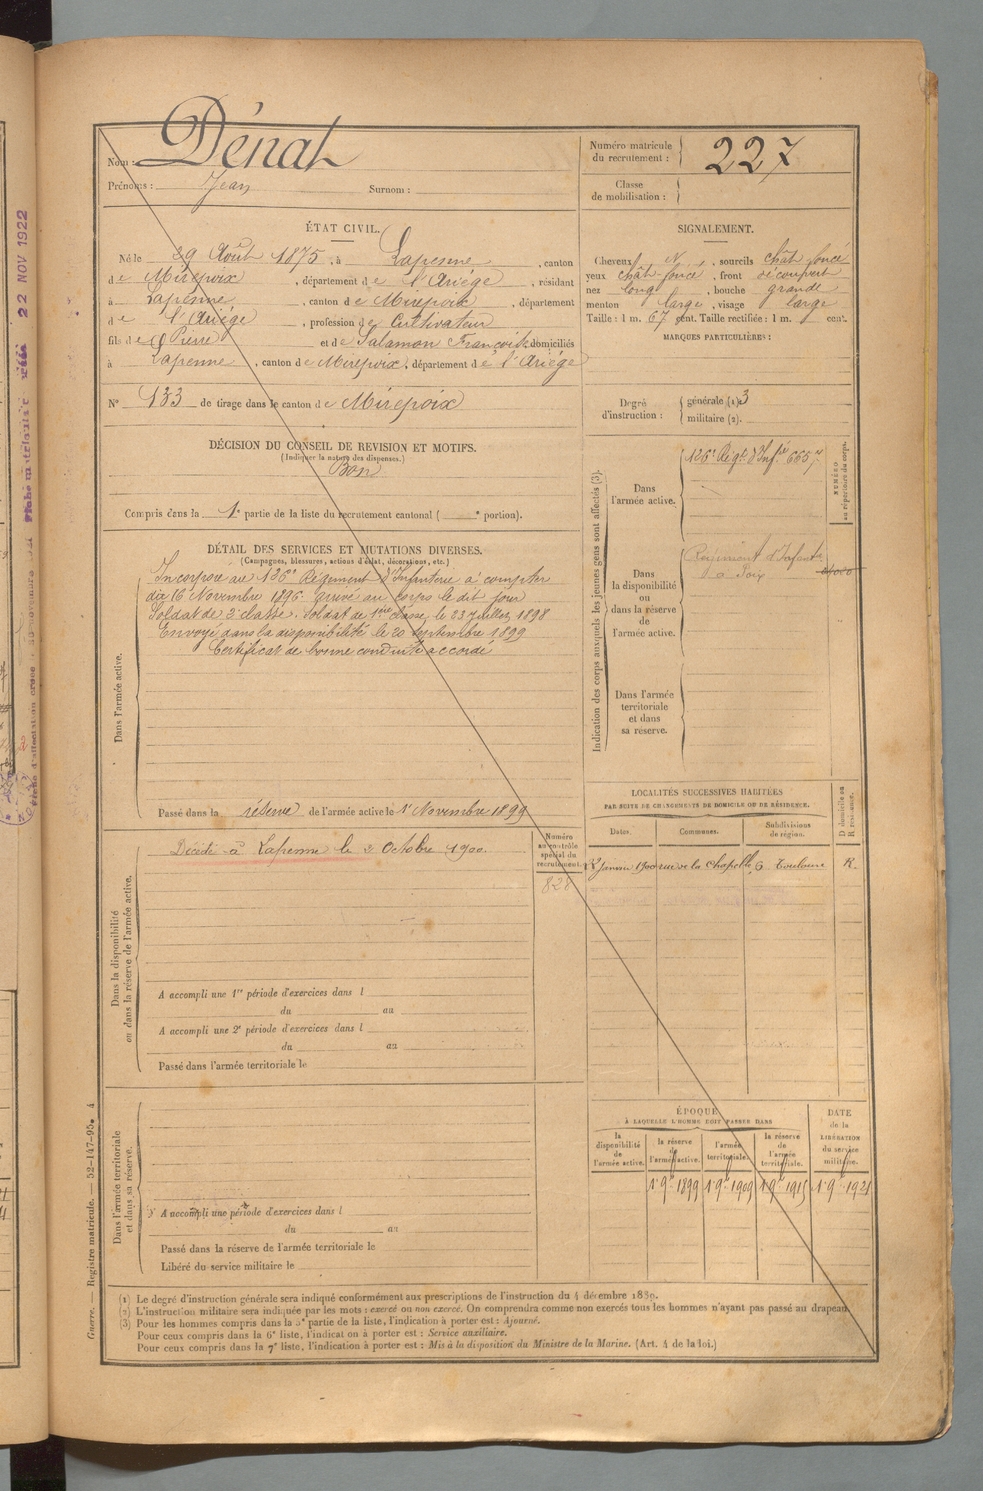 22 NOV 1922
Nom : Dénat
Prénoms : Jean Surnom :
Numéro matricule du recrutement : 227
Classe de mobilisation :
ÉTAT CIVIL.
Né le 29 Août 1875, à Lapenne, canton
de Mirepoix, département de l'Ariége, résidant
à Lapenne, canton de Mirepoix, département
de l'Ariége, profession de Cultivateur
fils de Pierre et de Salamon Françoise domiciliés
à Lapenne, canton de Mirepoix, département de l'Ariége
N° 133 de tirage dans le canton de Mirepoix
SIGNALEMENT.
Cheveux N, sourcils chât-foncé
yeux chât-foncé, front découvert
nez long, bouche grande
menton large, visage large
Taille : 1 m. 67 cent. Taille rectifiée : 1 m. cent.
MARQUES PARTICULIÈRES :
Degré d'instruction : générale (1). 3
militaire (2).
DÉCISION DU CONSEIL DE REVISION ET MOTIFS.
(Indiquer la nature des dispenses.)
Bon
Compris dans la 1e partie de la liste du recrutement cantonal ( e portion).
DÉTAIL DES SERVICES ET MUTATIONS DIVERSES.
(Campagnes, blessures, actions d'éclat, décorations, etc.)
Dans l'armée active.
Incorporé au 126e Régiment d'Infanterie à compter
du 16 Novembre 1896. Arrivé au corps le dit jour
Soldat de 2e classe. Soldat de 1ère classe, le 23 juillet 1898
Envoyé dans la disponibilité le 20 septembre 1899
Certificat de bonne conduite accordé
Passé dans la réserve de l'armée active le 1er Novembre 1899
Indication des corps auxquels les jeunes gens sont affectés (3).
NUMÉRO au répertoire du corps.
Dans l'armée active.
126e Régt d'Infie
Dans la disponibilité ou dans la réserve de l'armée active.
Régiment d'Infanterie
à Foix
Dans l'armée territoriale et dans sa réserve.
Dans la disponibilité ou dans la réserve de l'armée active.
Décédé à Lapenne le 2 Octobre 1900.
Numéro au contrôle spécial du recrutement.
828
A accompli une 1re période d'exercices dans l
du au
A accompli une 2e période d'exercices dans l
du au
Passé dans l'armée territoriale le
LOCALITÉS SUCCESSIVES HABITÉES
PAR SUITE DE CHANGEMENTS DE DOMICILE OU DE RÉSIDENCE.
Dates. Communes. Subdivisions de région. D domicile ou R résidence.
22 Janvier 1900 rue de la Chapelle, 6 Toulouse R.
Dans l'armée territoriale et dans sa réserve.
A accompli une période d'exercices dans l
du au
Passé dans la réserve de l'armée territoriale le
Libéré du service militaire le
ÉPOQUE
À LAQUELLE L'HOMME DOIT PASSER DANS
la disponibilité de l'armée active. la réserve de l'armée active. l'armée territoriale. la réserve de l'armée territoriale. DATE de la LIBÉRATION du service militaire.
1er 9bre 1899 1er 9bre 1909 1er 9bre 1915 1er 9bre 1921
(1) Le degré d'instruction générale sera indiqué conformément aux prescriptions de l'instruction du 4 décembre 1889.
(2) L'instruction militaire sera indiquée par les mots : exercé ou non exercé. On comprendra comme non exercés tous les hommes n'ayant pas passé au drapeau.
(3) Pour les hommes compris dans la 5e partie de la liste, l'indication à porter est : Ajourné.
Pour ceux compris dans la 6e liste, l'indication à porter est : Service auxiliaire.
Pour ceux compris dans la 7e liste, l'indication à porter est : Mis à la disposition du Ministre de la Marine. (Art. 4 de la loi.)
Guerre. — Registre matricule. — 52-147-95. 4